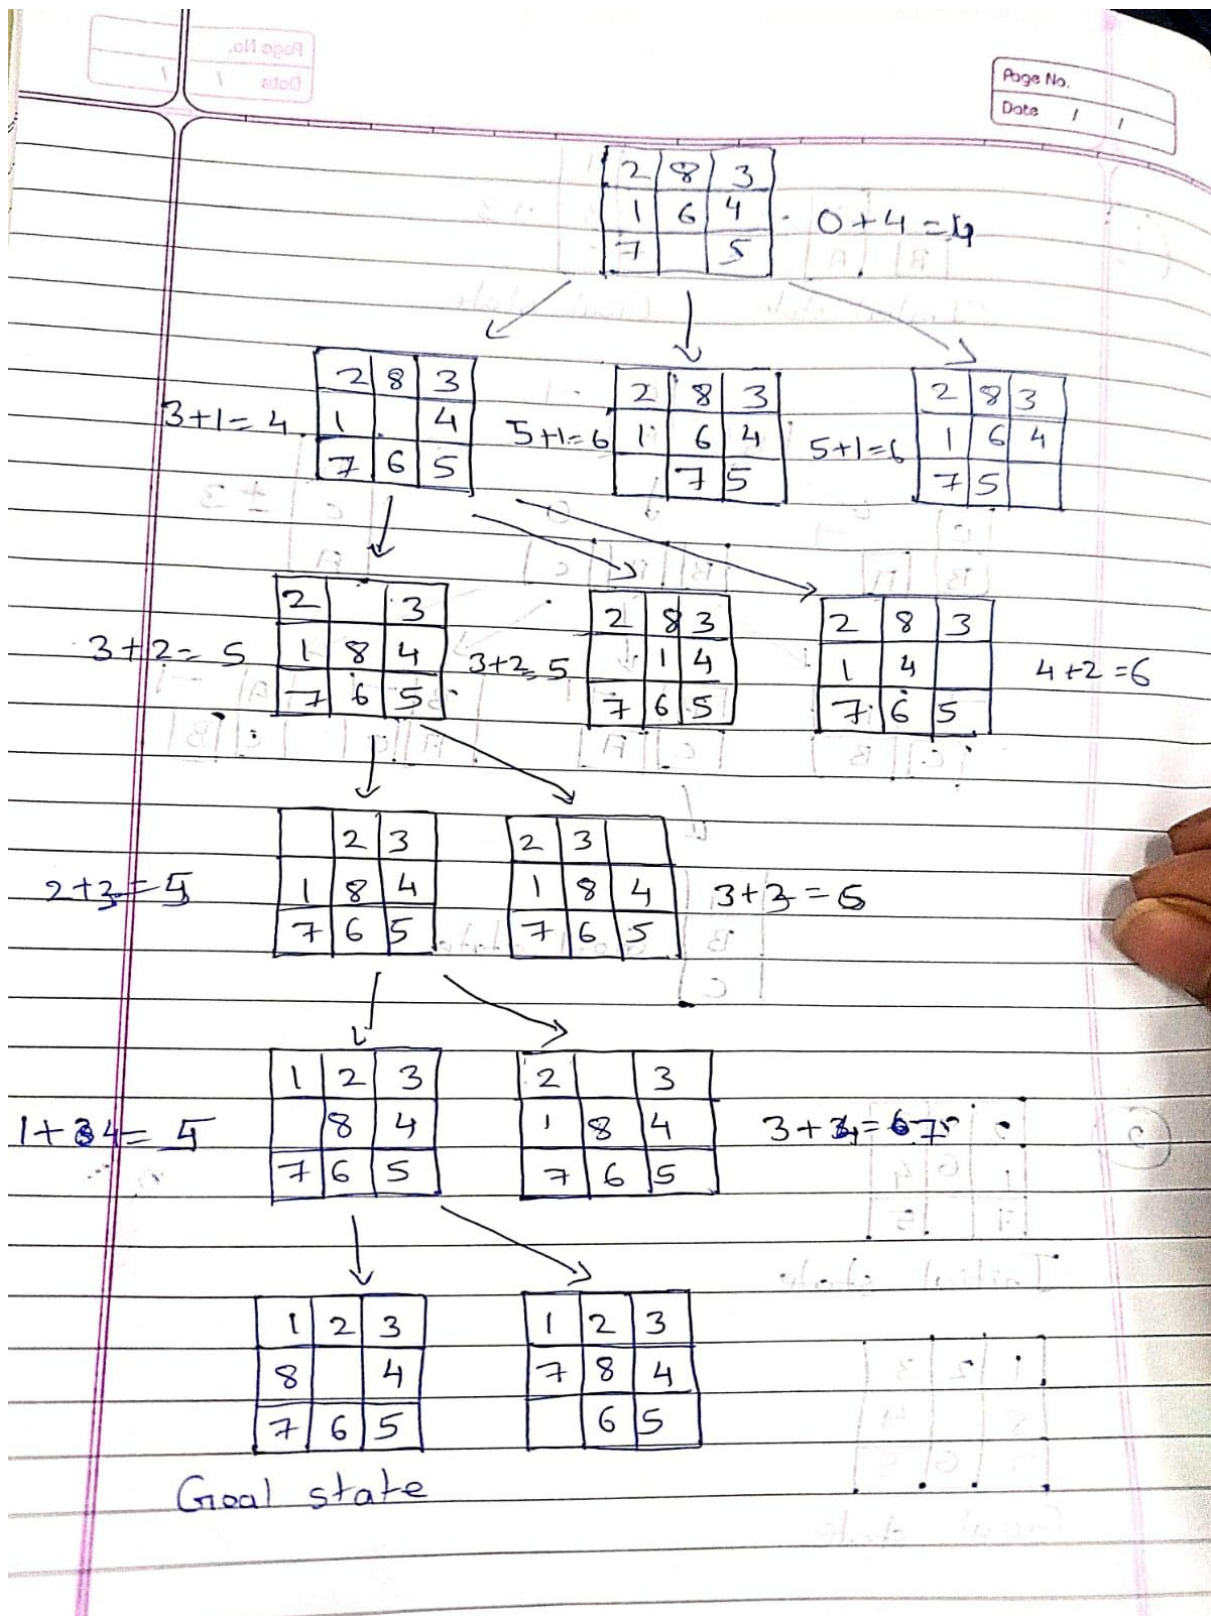 Page No.
Date / /
2 8 3
1 6 4
7 5
0+4=4
2 8 3
1 4
7 6 5
3+1=4
2 8 3
1 6 4
7 5
5+1=6
2 8 3
1 6 4
7 5
5+1=6
2 3
1 8 4
7 6 5
3+2=5
2 8 3
1 4
7 6 5
3+2=5
2 8 3
1 4
7 6 5
4+2=6
2 3
1 8 4
7 6 5
2+3=5
2 3
1 8 4
7 6 5
3+3=6
1 2 3
8 4
7 6 5
1+4=5
2 3
1 8 4
7 6 5
3+4=7
1 2 3
8 4
7 6 5
1 2 3
7 8 4
6 5
Goal state